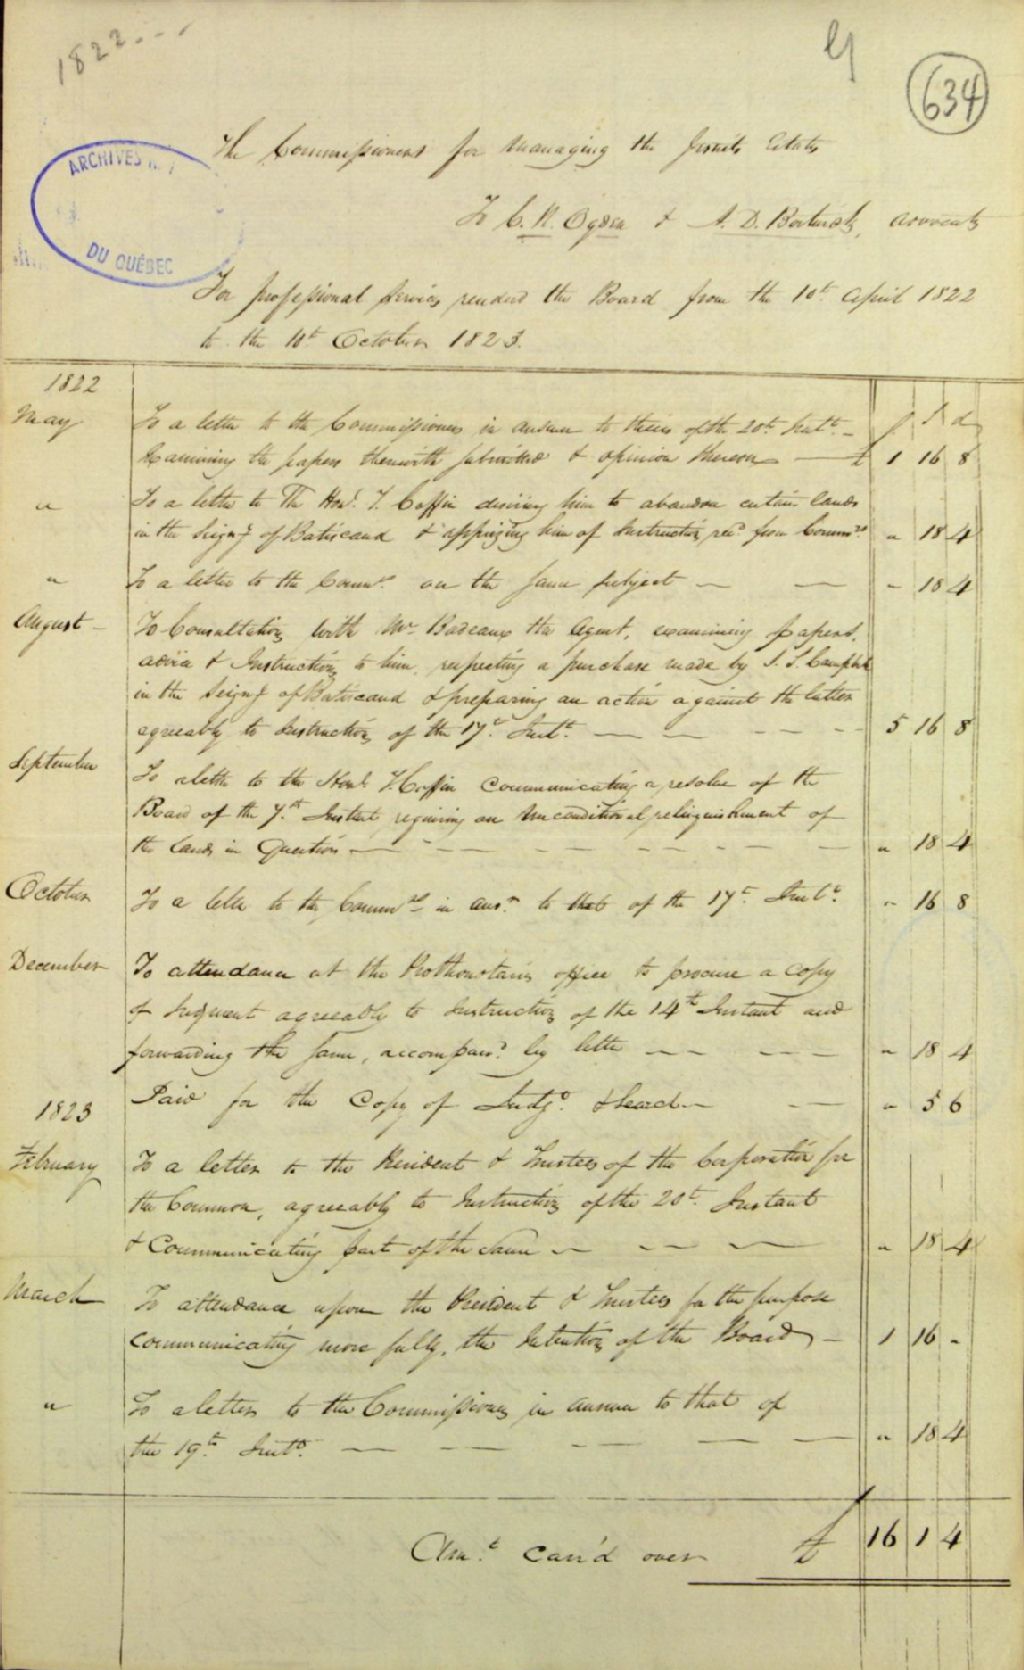 1822
634
ARCHIVES
DU QUÉBEC
The Commissioners for Managing the Jesuits Estates
To C. R. Ogden & A. D. Bostwick, advocates
For professional Services renderd the Board from the 10th April 1822
to the 10th October 1823.
1822
s d
May
To a letter to the Commissioners in answer to theirs of the 20th Instt
Examining the papers therewith submitted & opinion thereon £ 1 16 8
" To a letter to The Honl. T. Coffin desiring him to abandon certain lands
in the Seigny of Batiscand & apprizing him of Instructions recd from Commrs " 18 4
" To a letter to the Commrs on the same subject " 18 4
August
To Consultations with Mr Badeaux the Agent, examining papers,
advice & Instructions to him, respecting a purchase made by
in the Seigny of Batiscand & preparing an action against the latter
agreeably to Instructions of the 17th Instt. 5 16 8
September
To a letter to the Honl T. Coffin communicating a resolve of the
Board of the 7th Instant, requiring an unconditional relinquishment of
the lands in Question " 18 4
October
To a letter to the Commrs in ansr to that of the 17th Instt. " 16 8
December
To attendance at the Prothonotaries office to procure a copy
of Judgment agreeably to Instructions of the 14th Instant and
forwarding the same, accompand by letter " 18 4
Paid for the Copy of Judgt. & Search " 5 6
1823
February
To a letter to the President & Trustees of the Corporation for
the Common, agreeably to Instructions of the 20th Instant
& Communicating part of the Same " 18 4
March
To attendance upon the President & Trustees for the purpose
communicating more fully, the Intentions of the Board 1 16 -
" To a letter to the Commissioners in answer to that of
the 19th Instt. " 18 4
Amt. carr'd over £ 16 1 4